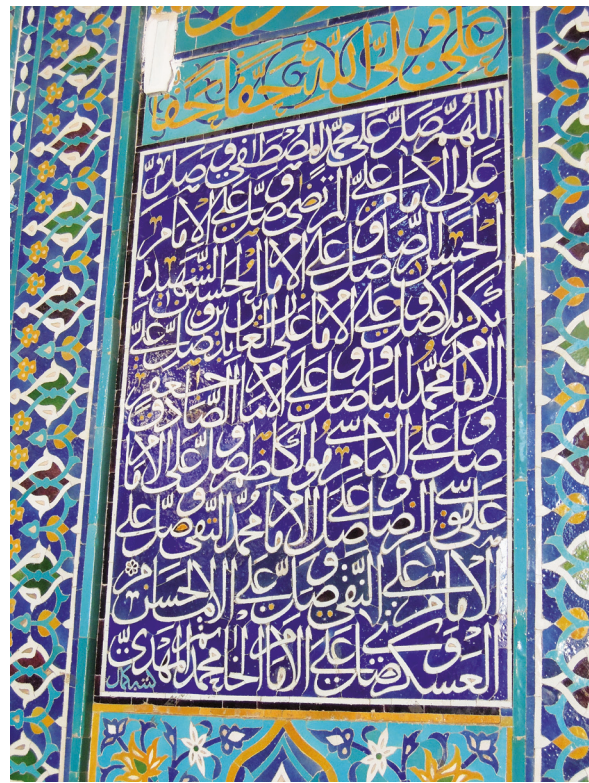 على ولى الله حقّاً حقّاً
اللهم صل على محمد المصطفى و صل
على الامام على المرتضى و صل على الامام
الحسن الرضا و صل على الامام الحسين الشهيد
بكربلا و صل على الامام على العابدين و صل على
الامام محمد الباقر و صل على الامام جعفر الصادق
و صل على الامام موسى الكاظم و صل على الامام
على موسى الرضا و صل على الامام محمد التقى و صل على
الامام على النقى و صل على الامام الحسن
العسكرى و صل على الامام الخلف محمد المهدى